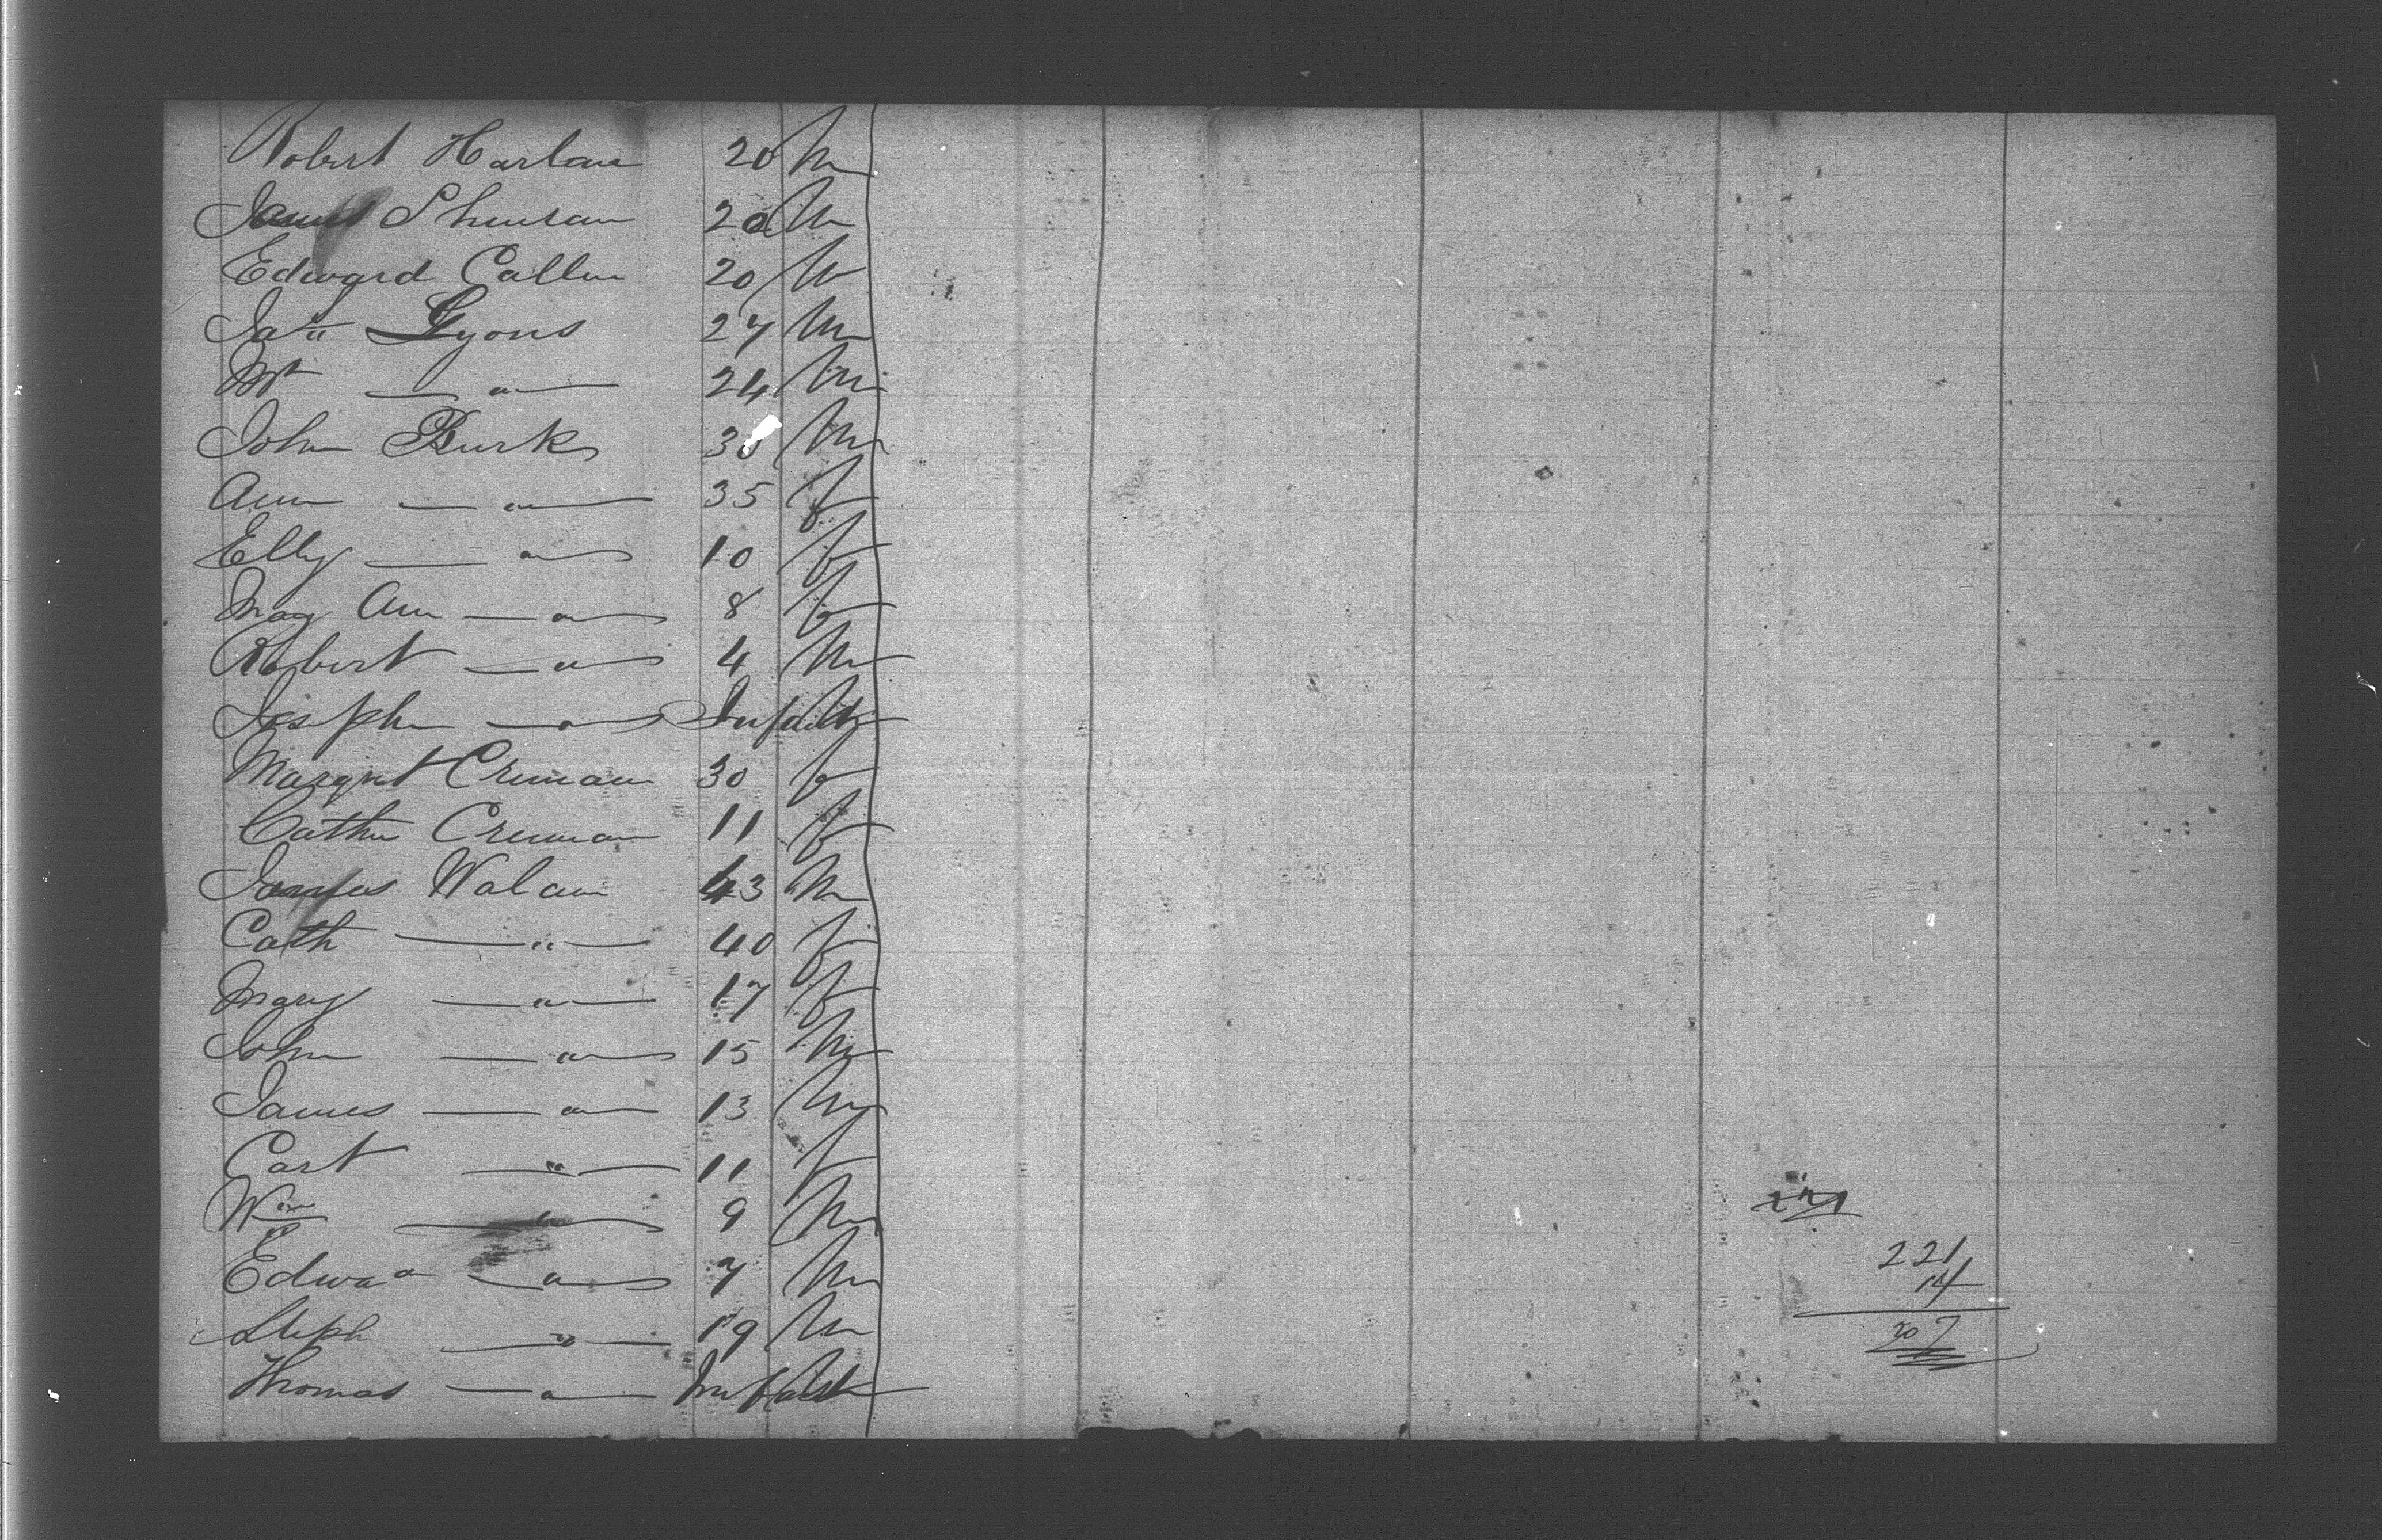 Robert Harlan 20 M
James Shuran 20 M
Edward Callen 20 M
Lyons 27 M
— " — 24 M
John Burk 30 M
Ann — " — 35 f
Elly — " — 10 f
May Ann — " — 8 f
Robert — " — 4 M
Joseph — " — Infant
Margret Crenan 30 f
Cathn Crenan 11 f
James Walan 43 M
Cath — " — 40 f
Mary — " — 17 f
John — " — 15 M
James — " — 13 M
— " — 11 f
Wm — " — 9 M
Edwad — " — 7 M
Steph — " — 19 M
Thomas — " — Infant
221
14
207